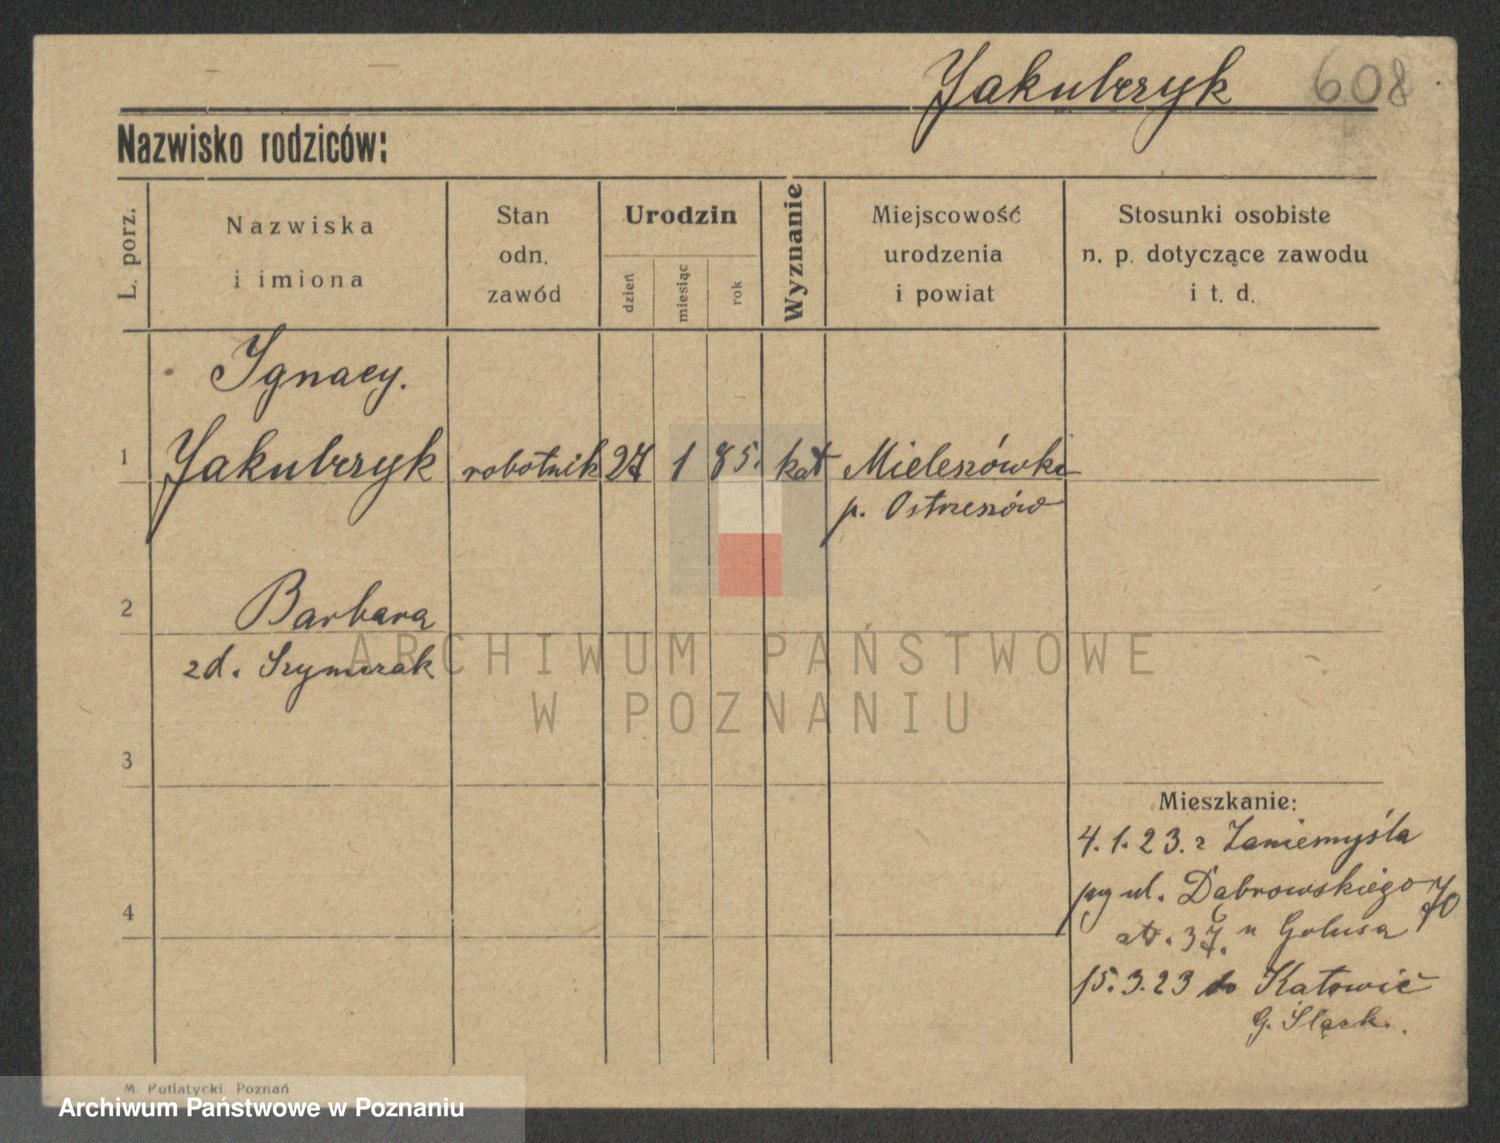 Jakubczyk 608
Nazwisko rodziców:
L. porz.
Nazwiska
i imiona
Stan
odn.
zawód
Urodzin
dzień
miesiąc
rok
Wyznanie
Miejscowość
urodzenia
i powiat
Stosunki osobiste
n. p. dotyczące zawodu
i t. d.
Ignacy.
1 Jakubczyk robotnik 27 1 85. kat Mieleszówki
p. Ostrzeszów
2 Barbara
zd. Szymczak
ARCHIWUM PAŃSTWOWE
W POZNANIU
3
Mieszkanie:
4.1.23. z Zaniemyśla
ul. Dąbrowskiego 70
37. u Golusa
4
15.3.23 do Katowic
G. Śląsk.
M. Putiatycki, Poznań
Archiwum Państwowe w Poznaniu